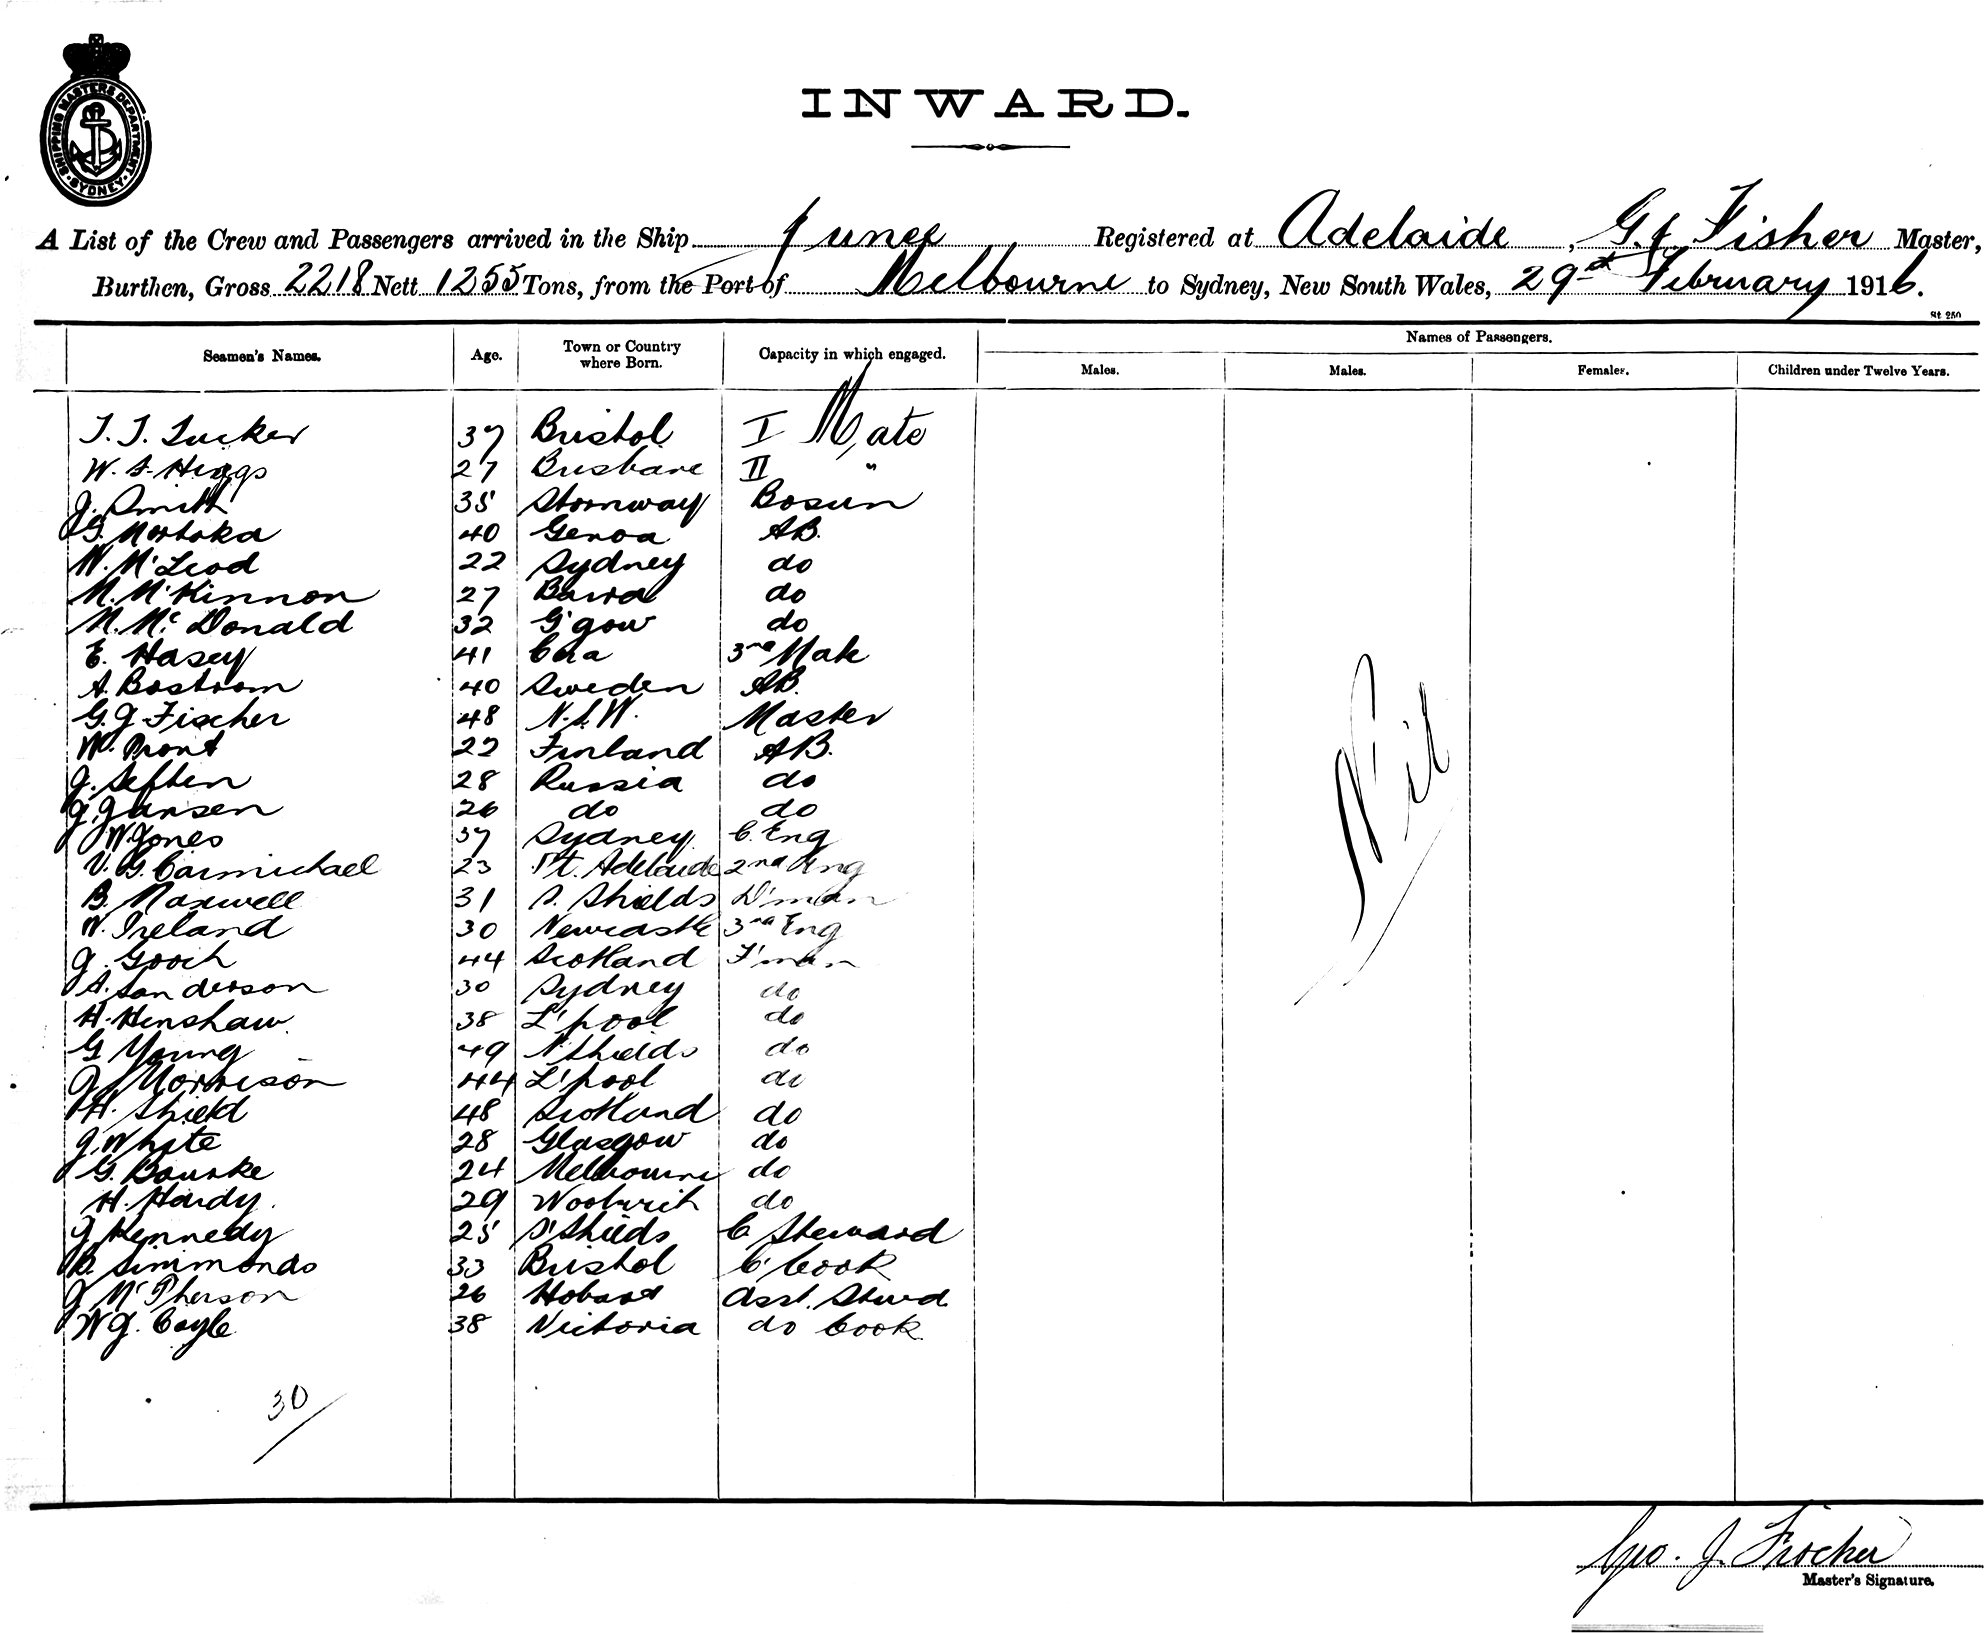 SHIPPING MASTERS DEPARTMENT. SYDNEY
INWARD.
A List of the Crew and Passengers arrived in the Ship Junee Registered at Adelaide, G. J. Fisher Master,
Burthen, Gross 2218 Nett 1255 Tons, from the Port of Melbourne to Sydney, New South Wales, 29th February 1916.
St 250
Seamen's Names. Age. Town or Country where Born. Capacity in which engaged. Names of Passengers.
Males. Males. Females. Children under Twelve Years.
T. J. Tucker 37 Bristol I Mate
W. S. Higgs 27 Brisbane II "
J. Smith 35 Stornway Bosun
40 Genoa AB.
W. McLeod 22 Sydney do
M. McKinnon 27 Barra do
M. Mc Donald 32 G'gow do
E. Hasey 41 3rd Mate
A. Bostrom 40 Sweden AB.
G. J. Fischer 48 N.S.W. Master
W. Pront 22 Finland AB.
J. Seften 28 Russia do
J. Jansen 26 do do
W Jones 37 Sydney C. Eng
V. G. Carmichael 23 Pt. Adelaide 2nd Eng
B. Maxwell 31 S. Shields D'man
W. Ireland 30 Newcastle 3rd Eng
J. Gooch 44 Scotland F'man
A. Sanderson 30 Sydney do
H. Henshaw 38 L'pool do
G Young 49 N Shields do
J Morrison 44 L'pool do
H. Shield 48 Scotland do
J. White 28 Glasgow do
G. Bourke 24 Melbourne do
H. Hardy. 29 Woolwich do
J Kennedy 25 S' Shields C Steward
B. Simmonds 33 Bristol C' Cook
J McPherson 26 Hobart Asst. Stwd.
W J. Coyle 38 Victoria do Cook
Nil
30
Geo. J. Fischer
Master's Signature.